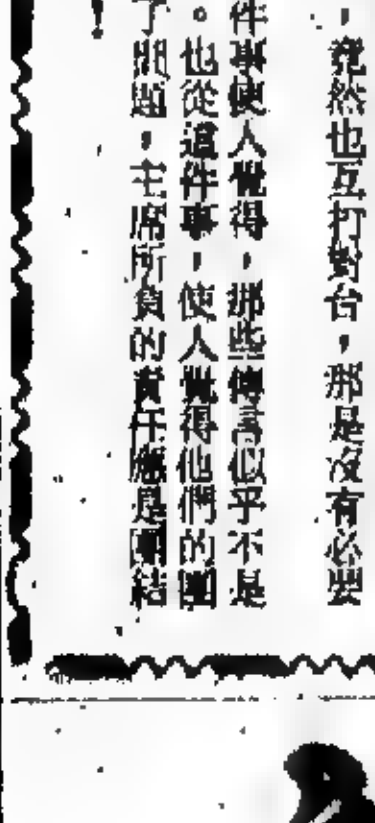 ，竟然也互打對台，那是沒有必要
件事使人覺得，那些傳言似乎不是
。也從這件事，使人覺得他們的團
了問題，主席所負的責任應是團結
！